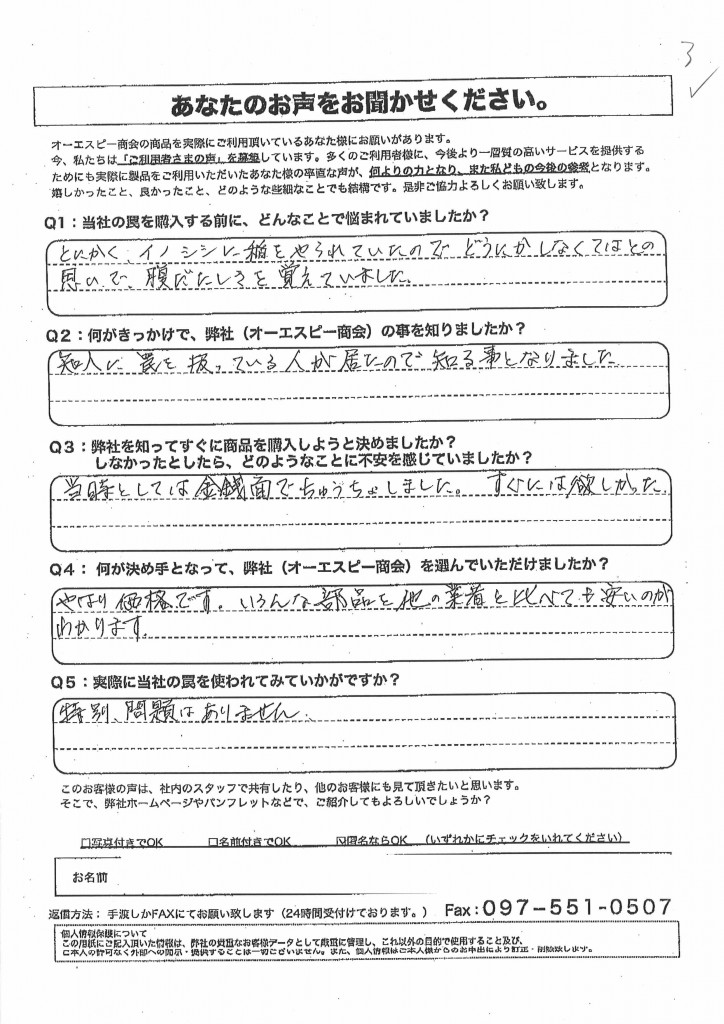 3
あなたのお声をお聞かせください。
オーエスピー商会の商品を実際にご利用頂いているあなた様にお願いがあります。
今、私たちは「ご利用者さまの声」を募集しています。多くのご利用者様に、今後より一層質の高いサービスを提供する
ためにも実際に製品をご利用いただいたあなた様の率直な声が、何よりの力となり、また私どもの今後の参考となります。
嬉しかったこと、良かったこと、どのような些細なことでも結構です。是非ご協力よろしくお願い致します。
Q1：当社の罠を購入する前に、どんなことで悩まれていましたか？
とにかく、イノシシに稲をやられていたので どうにかしなくてはとの
思いで、腹だたしさを覚えていました。
Q2：何がきっかけで、弊社（オーエスピー商会）の事を知りましたか？
知人に 罠を扱っている人が居たので 知る事となりました
Q3：弊社を知ってすぐに商品を購入しようと決めましたか？
しなかったとしたら、どのようなことに不安を感じていましたか？
当時としては金銭面でちゅうちょしました。 すぐには欲しかった
Q4： 何が決め手となって、弊社（オーエスピー商会）を選んでいただけましたか？
やはり価格です。いろんな部品を他の業者と比べても安いのが
わかります。
Q5：実際に当社の罠を使われてみていかがですか？
特別、問題はありません。
このお客様の声は、社内のスタッフで共有したり、他のお客様にも見て頂きたいと思います。
そこで、弊社ホームページやパンフレットなどで、ご紹介してもよろしいでしょうか？
□写真付きでOK □名前付きでOK ☑匿名ならOK （いずれかにチェックをいれてください）
お名前
返信方法：手渡しかFAXにてお願い致します（24時間受付けております。） Fax：097-551-0507
個人情報保護について
この用紙にご記入頂いた情報は、弊社の貴重なお客様データとして厳重に管理し、これ以外の目的で使用すること及び、
ご本人の許可なく外部への開示・提供することは一切ございません。また、個人情報はご本人様からのお申出により訂正・削除致します。